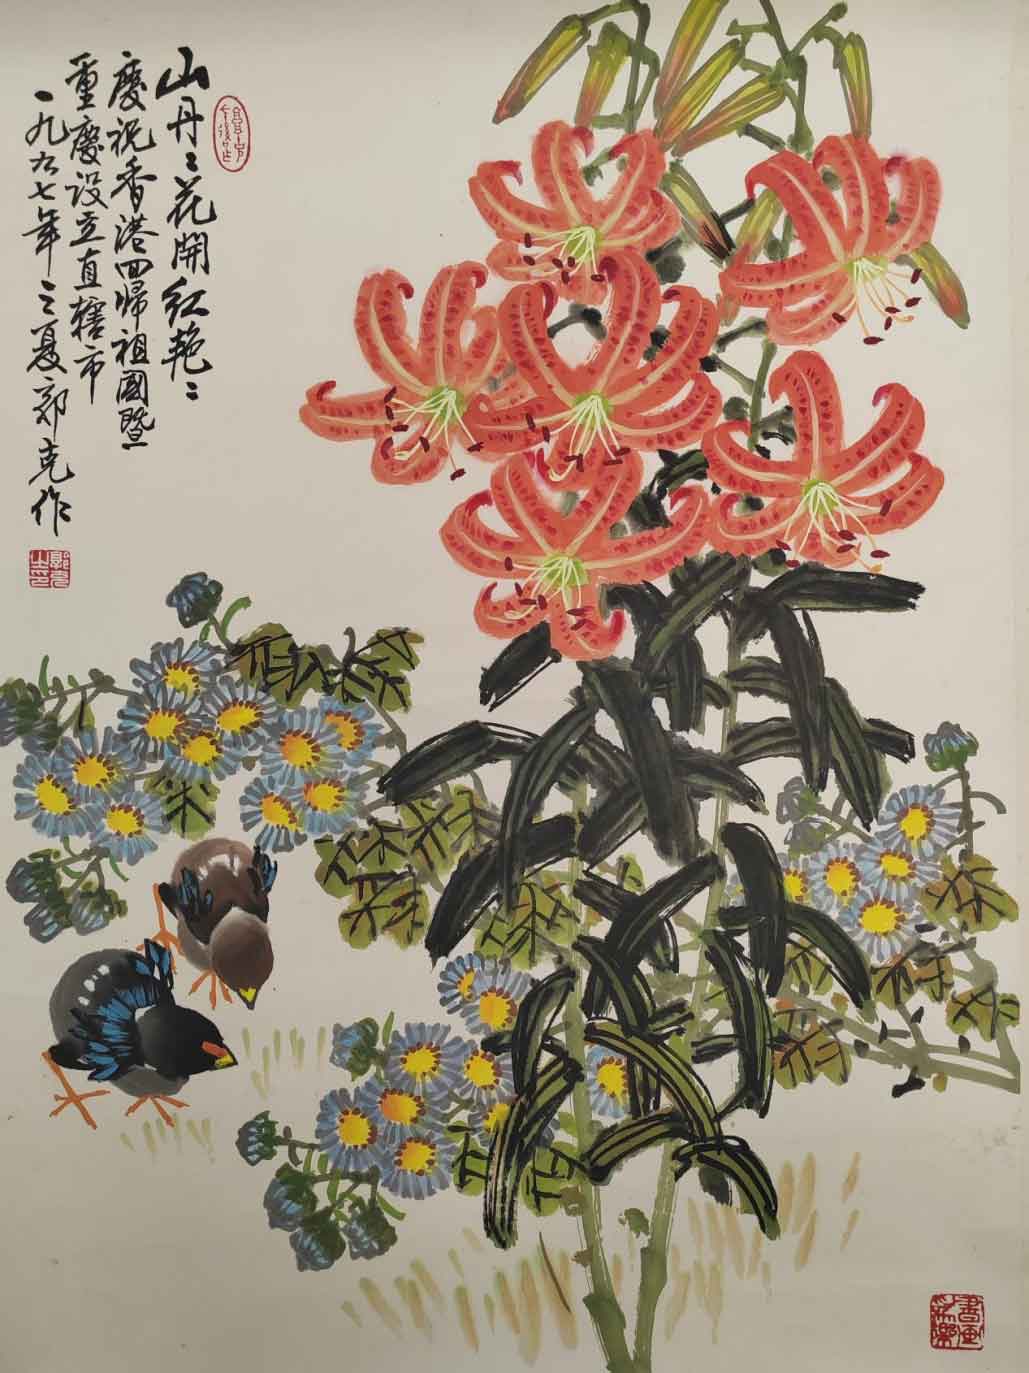 山丹〻花開红艳〻
慶祝香港回归祖國暨
重慶设立直辖市
一九九七年之夏郭克作